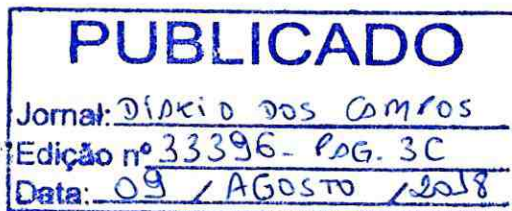 PUBLICADO
Jornal: DIÁRIO DOS CAMPOS
Edição nº 33396 - PAG. 3C
Data: 09 / AGOSTO / 2018